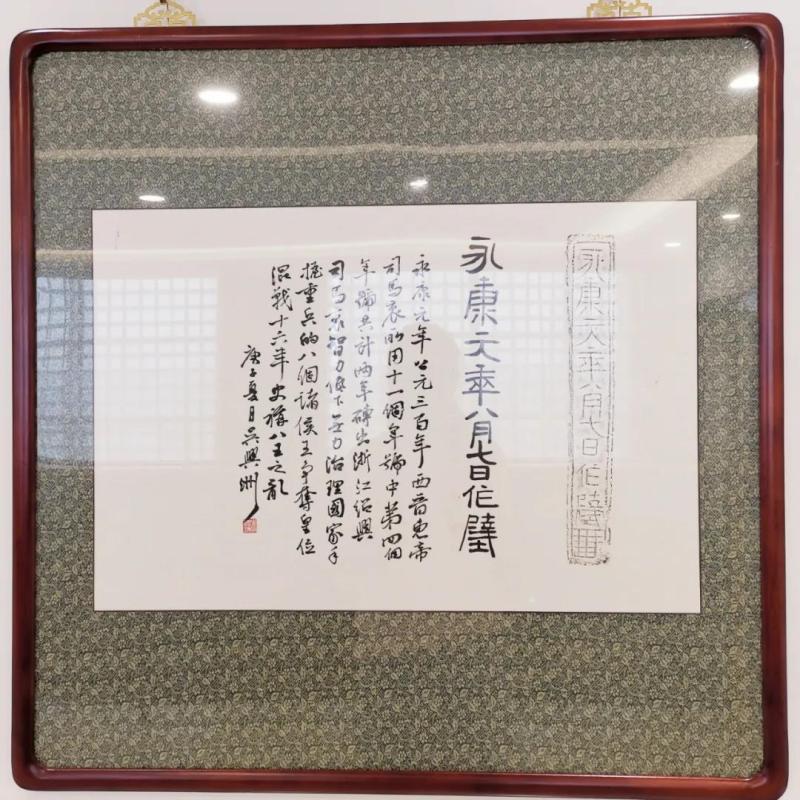 永康元年八月七日作壁
永康元年八月七日作壁
永康元年公元三百年西晋惠帝
司馬衷所用十一個年號中第四個
年號共计两年磚出浙江绍興
司马衷智力低下無力治理國家手
握重兵的八個諸侯王争奪皇位
混戰十六年史稱八王之乱
庚子夏日吴興洲